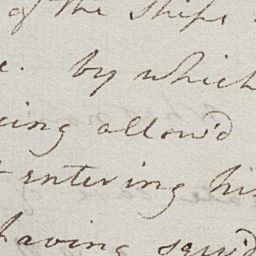 of the Ships
e. by which
cing allow'd
t entering hi
having squ'd